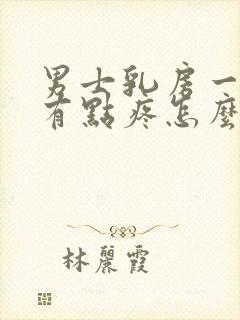 男士乳房一
有點疼怎麼
林麗霞